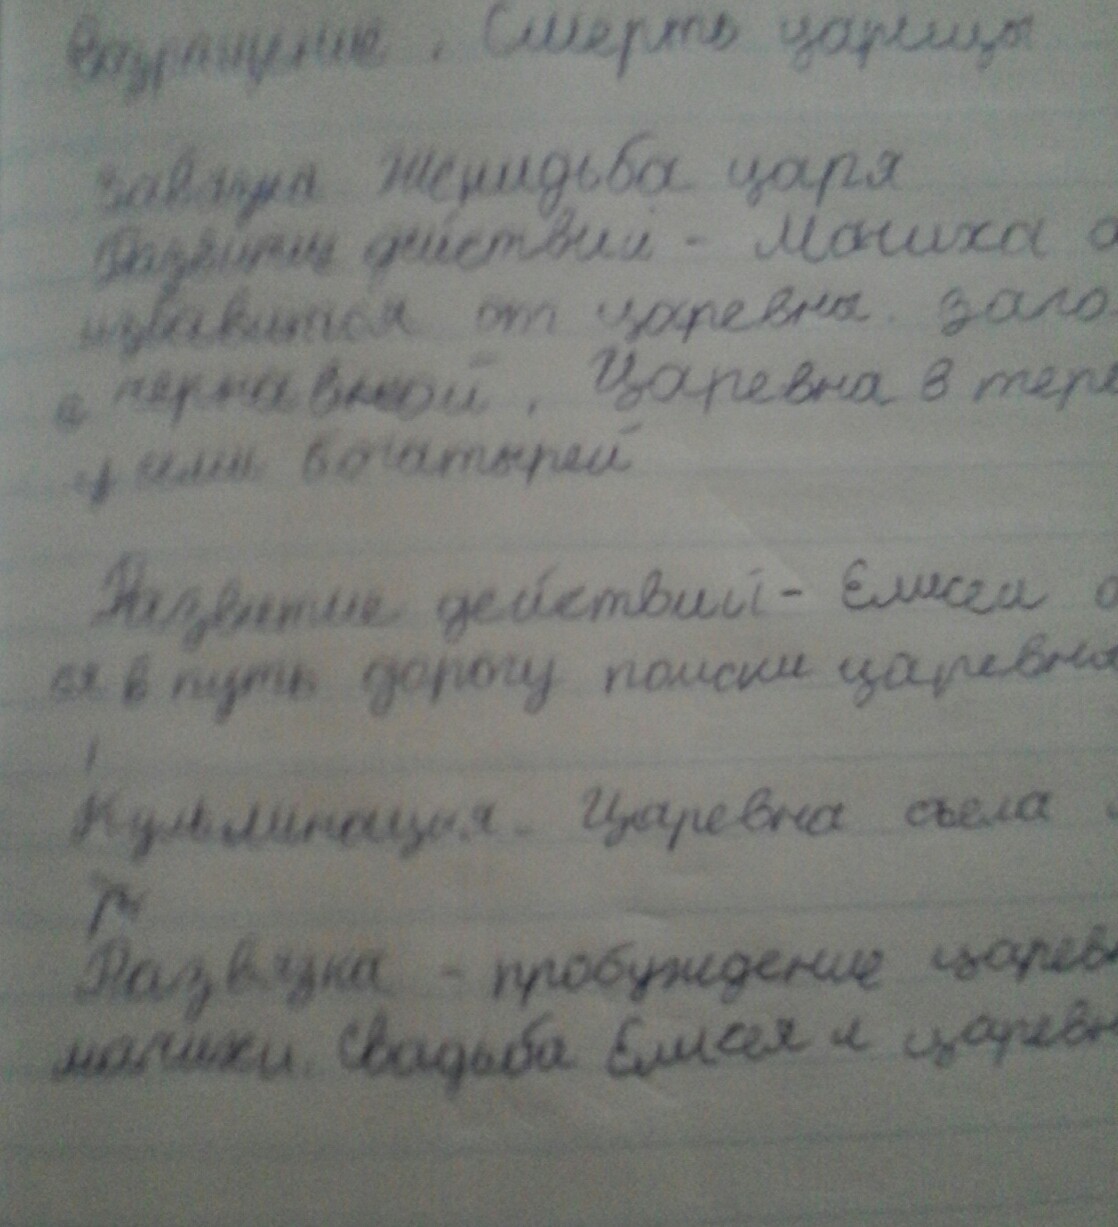 Возращение. Смерть царицы
Завязка Женидьба царя
Развитие действий - Мачиха
избавится от царевны.
Царевна в
у семи богатырей
Развитие действий - Елисей
ся в путь дорогу поиски царевны
Кульминация - Царевна съела
Развязка - пробуждение царевн
мачихи. Свадьба Елисея и царевн